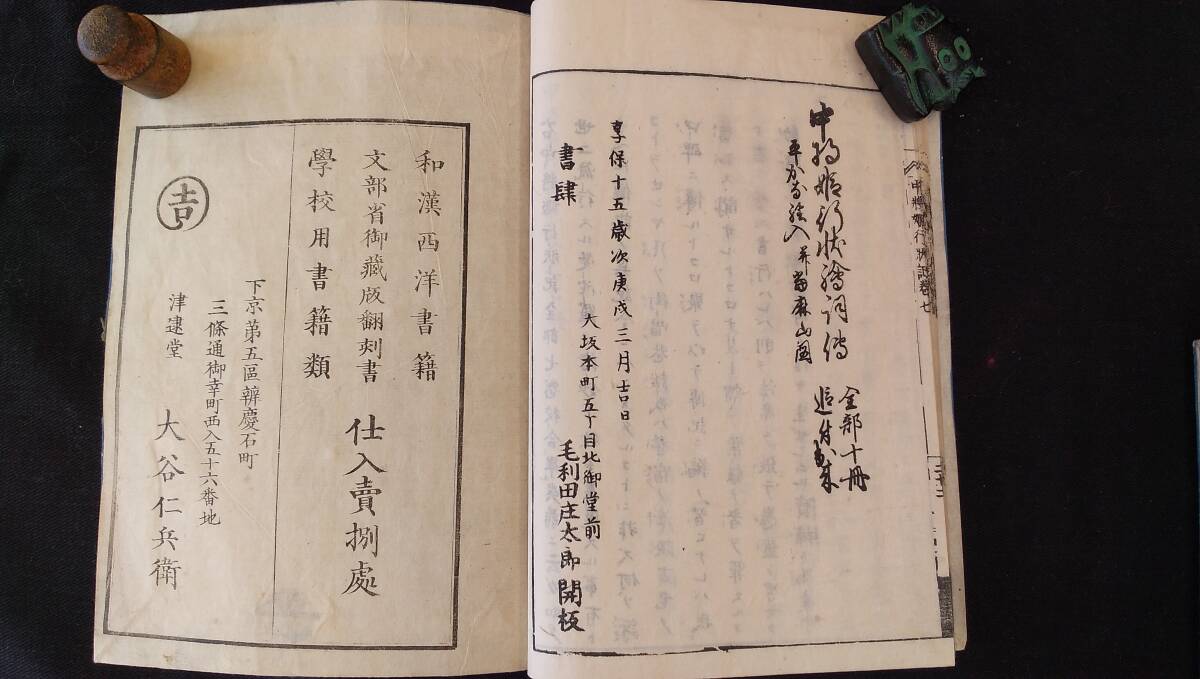 中将姫行状繪詞傳 全部十冊
平かな繪入 并當麻山圖 追付出来
享保十五歳次庚戌三月吉日
大坂本町五丁目北御堂前
書肆 毛利田庄太郎開板
中将姫行状記卷七
和漢西洋書籍
文部省御藏版翻刻書
學校用書籍類
仕入賣捌處
下京第五區辨慶石町
三條通御幸町西入五十六番地
津逮堂 大谷仁兵衛
吉